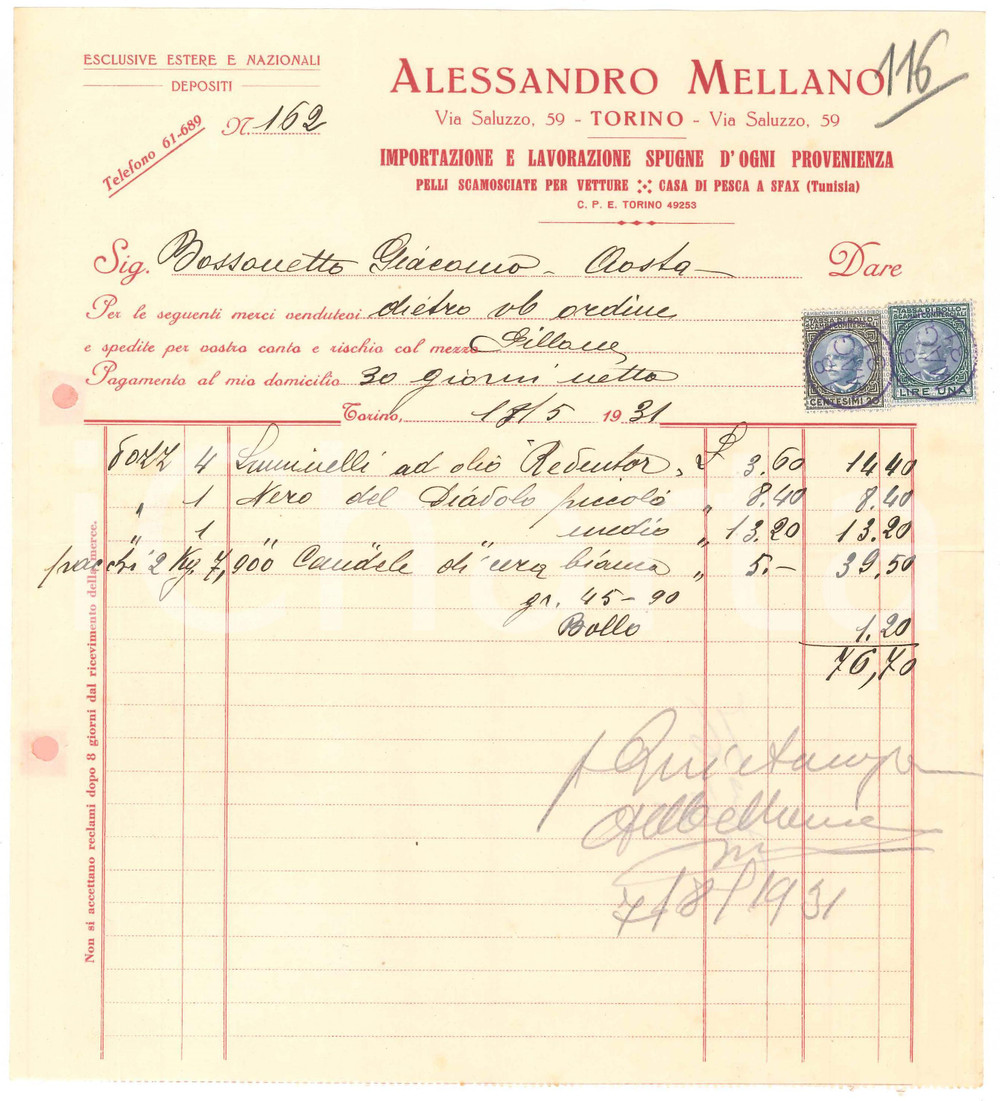 ESCLUSIVE ESTERE E NAZIONALI
DEPOSITI
Telefono 61-689
N. 162
116
ALESSANDRO MELLANO
Via Saluzzo, 59 - TORINO - Via Saluzzo, 59
IMPORTAZIONE E LAVORAZIONE SPUGNE D'OGNI PROVENIENZA
PELLI SCAMOSCIATE PER VETTURE CASA DI PESCA A SFAX (Tunisia)
C. P. E. TORINO 49253
Sig. Bossonetto Giacomo - Aosta - Dare
Per le seguenti merci vendutevi dietro vb ordine
e spedite per vostro conto e rischio col mezzo
Pagamento al mio domicilio 30 giorni netto
TASSA DI BOLLO
CENTESIMI 20
TASSA DI BOLLO
SCAMBI COMMERCIALI
LIRE UNA
Torino, 18/5 1931
Dozz 4 Luminelli ad olio Redentor " £ 3.60 14.40
" 1 Nero del Diavolo piccolo " 8.40 8.40
" 1 " " medio " 13.20 13.20
pacchi 2 Kg. 7,900 Candele di cera bianca " 5.- 39.50
gr. 45-90
Bollo 1.20
76,70
Non si accettano reclami dopo 8 giorni dal ricevimento della merce.
p Quietanza
7/8/1931